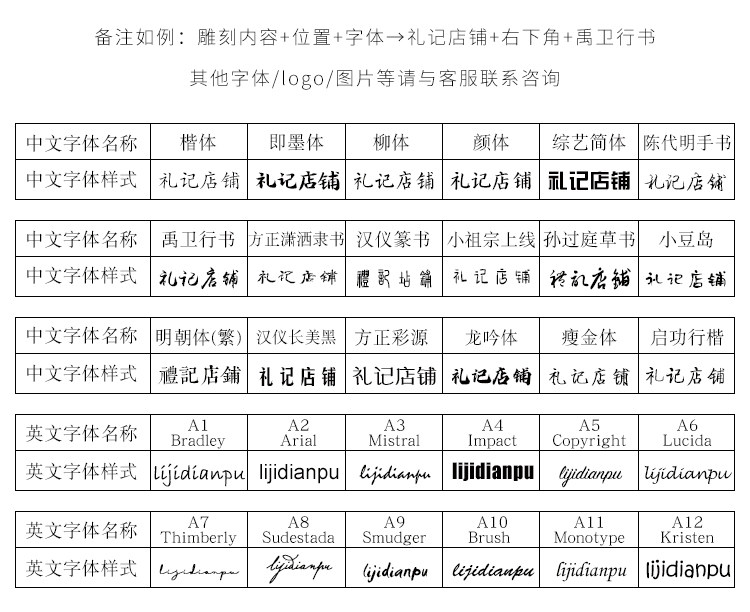 备注如例：雕刻内容+位置+字体→礼记店铺+右下角+禹卫行书
其他字体/logo/图片等请与客服联系咨询
中文字体名称 楷体 即墨体 柳体 颜体 综艺简体 陈代明手书
中文字体样式 礼记店铺 礼记店铺 礼记店铺 礼记店铺 礼记店铺 礼记店铺
中文字体名称 禹卫行书 方正潇洒隶书 汉仪篆书 小祖宗上线 孙过庭草书 小豆岛
中文字体样式 礼记店铺 礼记店铺 禮記店鋪 礼记店铺 禮記店鋪 礼记店铺
中文字体名称 明朝体(繁) 汉仪长美黑 方正彩源 龙吟体 瘦金体 启功行楷
中文字体样式 禮記店鋪 礼记店铺 礼记店铺 礼记店铺 礼记店铺 礼记店铺
英文字体名称 A1 Bradley A2 Arial A3 Mistral A4 Impact A5 Copyright A6 Lucida
英文字体样式 lijidianpu lijidianpu lijidianpu lijidianpu lijidianpu lijidianpu
英文字体名称 A7 Thimberly A8 Sudestada A9 Smudger A10 Brush A11 Monotype A12 Kristen
英文字体样式 lijidianpu lijidianpu lijidianpu lijidianpu lijidianpu lijidianpu